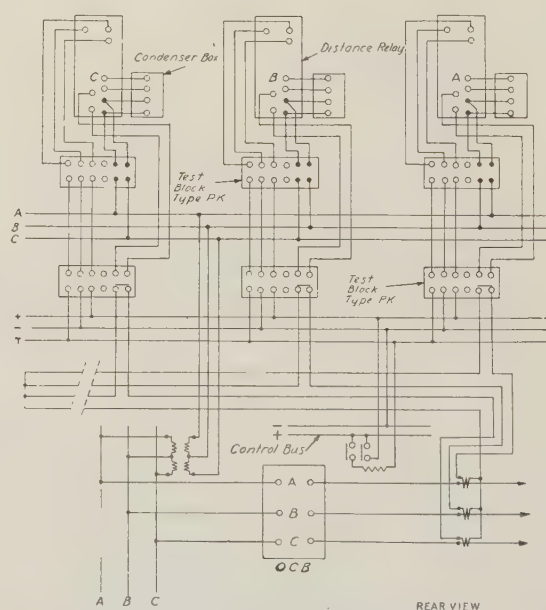 C
Condenser Box
B
Distance Relay
A
Test
Block
Type PK
A
B
C
Test
Block
Type PK
+
−
T
−
+
Control Bus
A
B
C
OCB
A B C
REAR VIEW